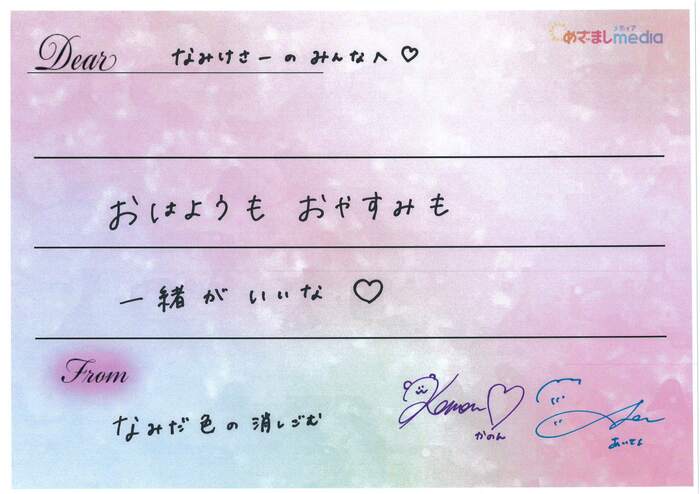 Dear なみけさーのみんなへ♡
メディア
めざましmedia
おはようも おやすみも
一緒がいいな ♡
From
なみだ色の消しごむ
Kanon♡
かのん